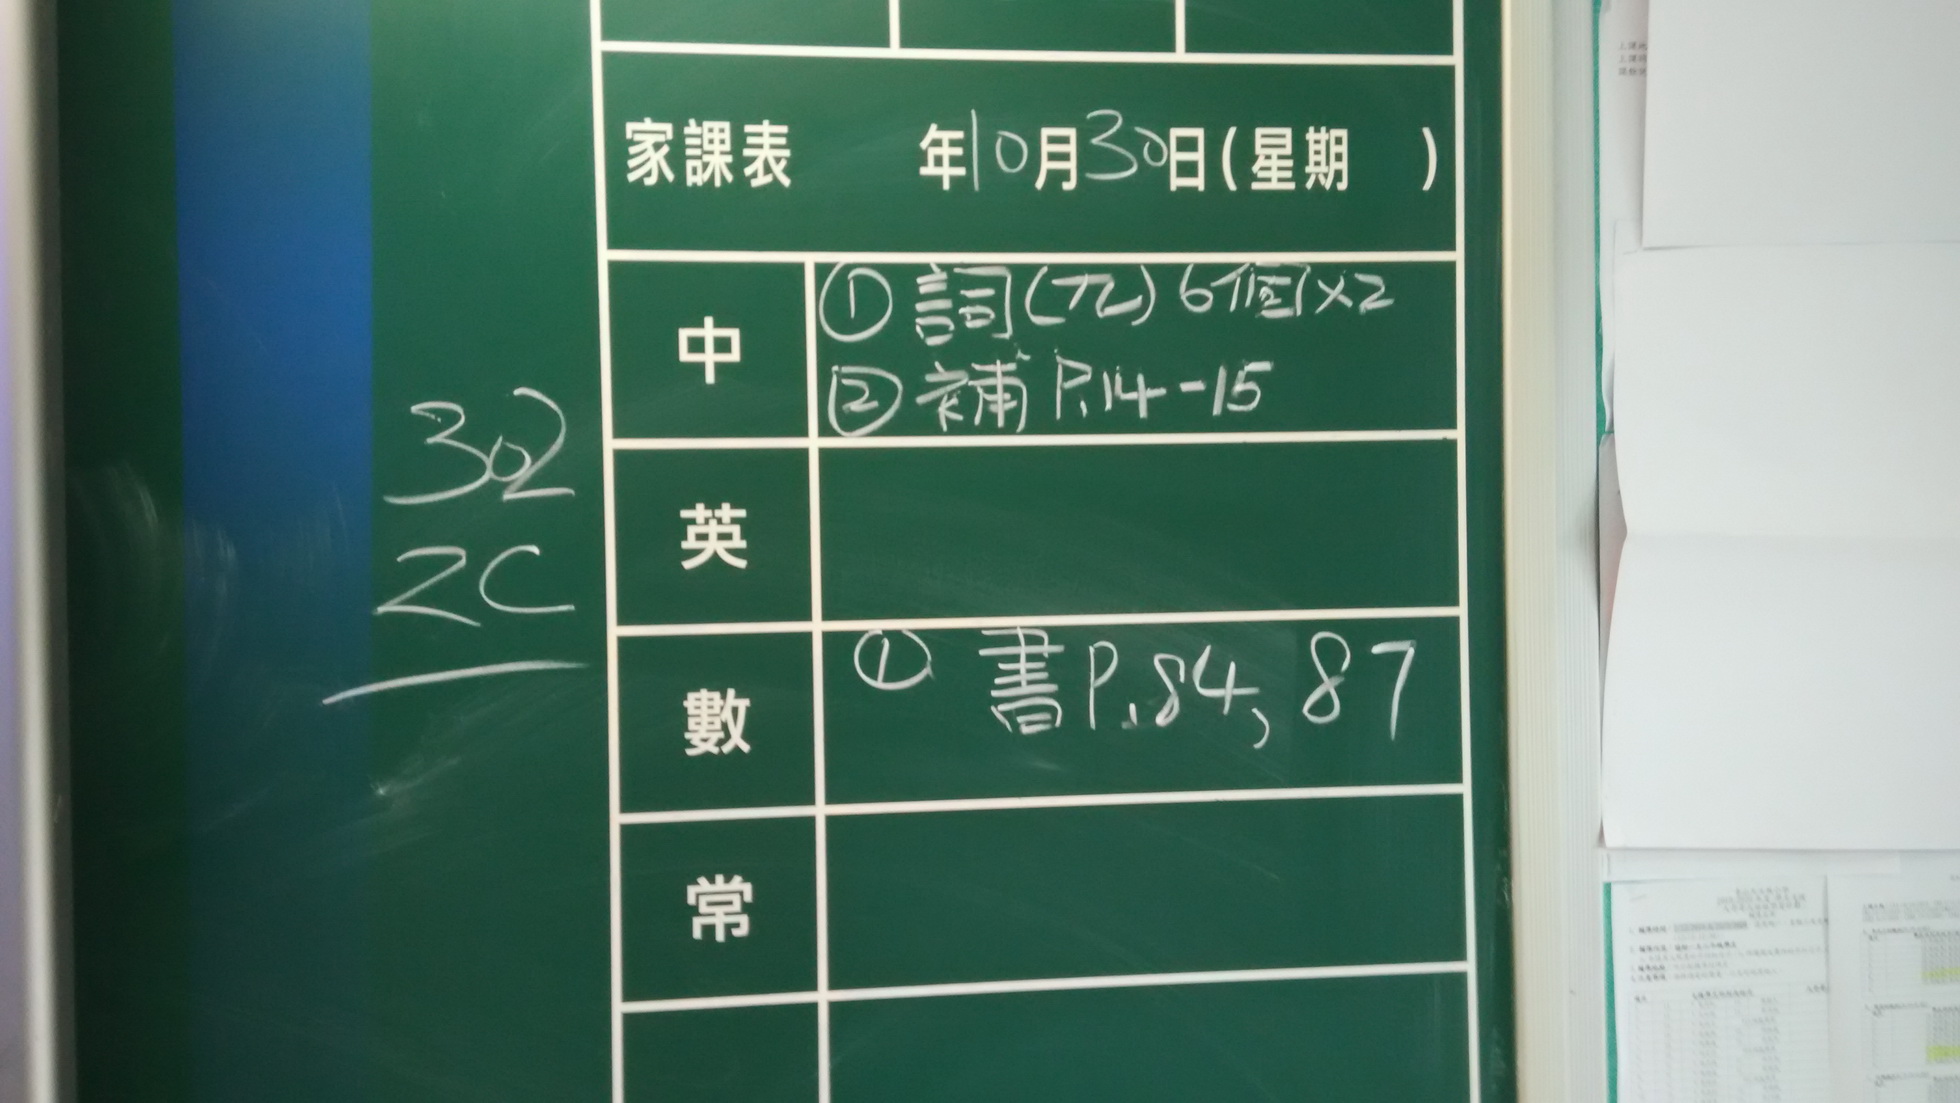 家課表 年10月30日(星期 )
中
① 詞(九)6個x2
② 補 P.14-15
英
數
① 書P.84, 87
常
302
2C